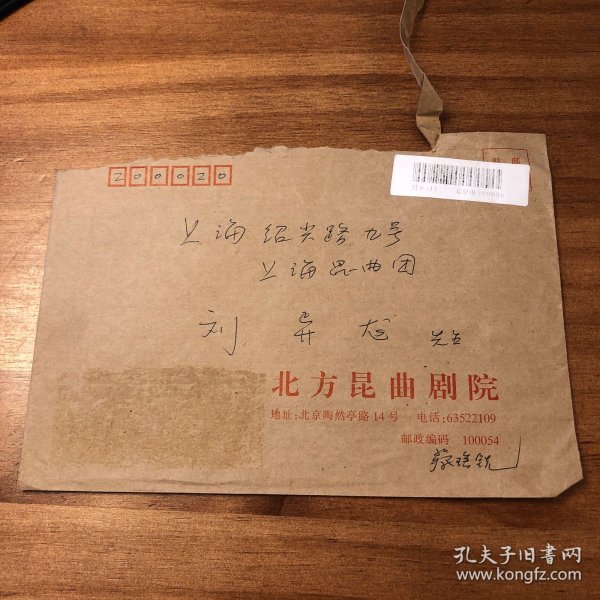 200020
上海绍兴路九号
上海昆曲团
刘异龙 先生
北方昆曲剧院
地址:北京陶然亭路14号 电话:63522109
邮政编码 100054
蔡瑶铣
孔夫子旧书网
www.kongfz.com